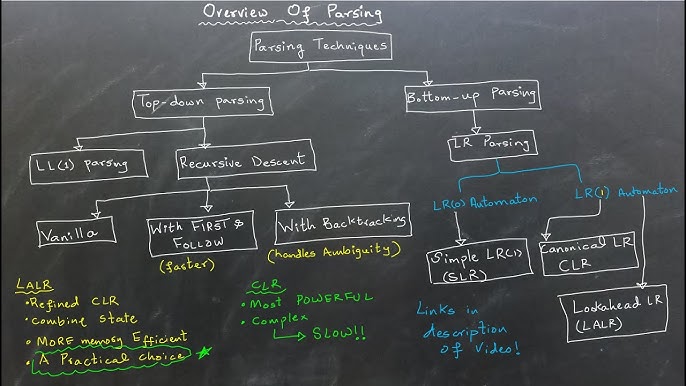 Overview Of Parsing
Parsing Techniques
Top-down parsing
Bottom-up Parsing
LL(1) parsing
Recursive Descent
LR Parsing
LR(0) Automaton
LR(1) Automaton
Vanilla
With FIRST &
FOLLOW
(faster)
With Backtracking
(handles Ambiguity)
Simple LR(1)
(SLR)
Canonical LR
CLR
Lookahead LR
(LALR)
LALR
• Refined CLR
• Combine state
• MORE memory Efficient
• A Practical choice
CLR
• Most POWERFUL
• Complex
SLOW!!
Links in
description
of Video!